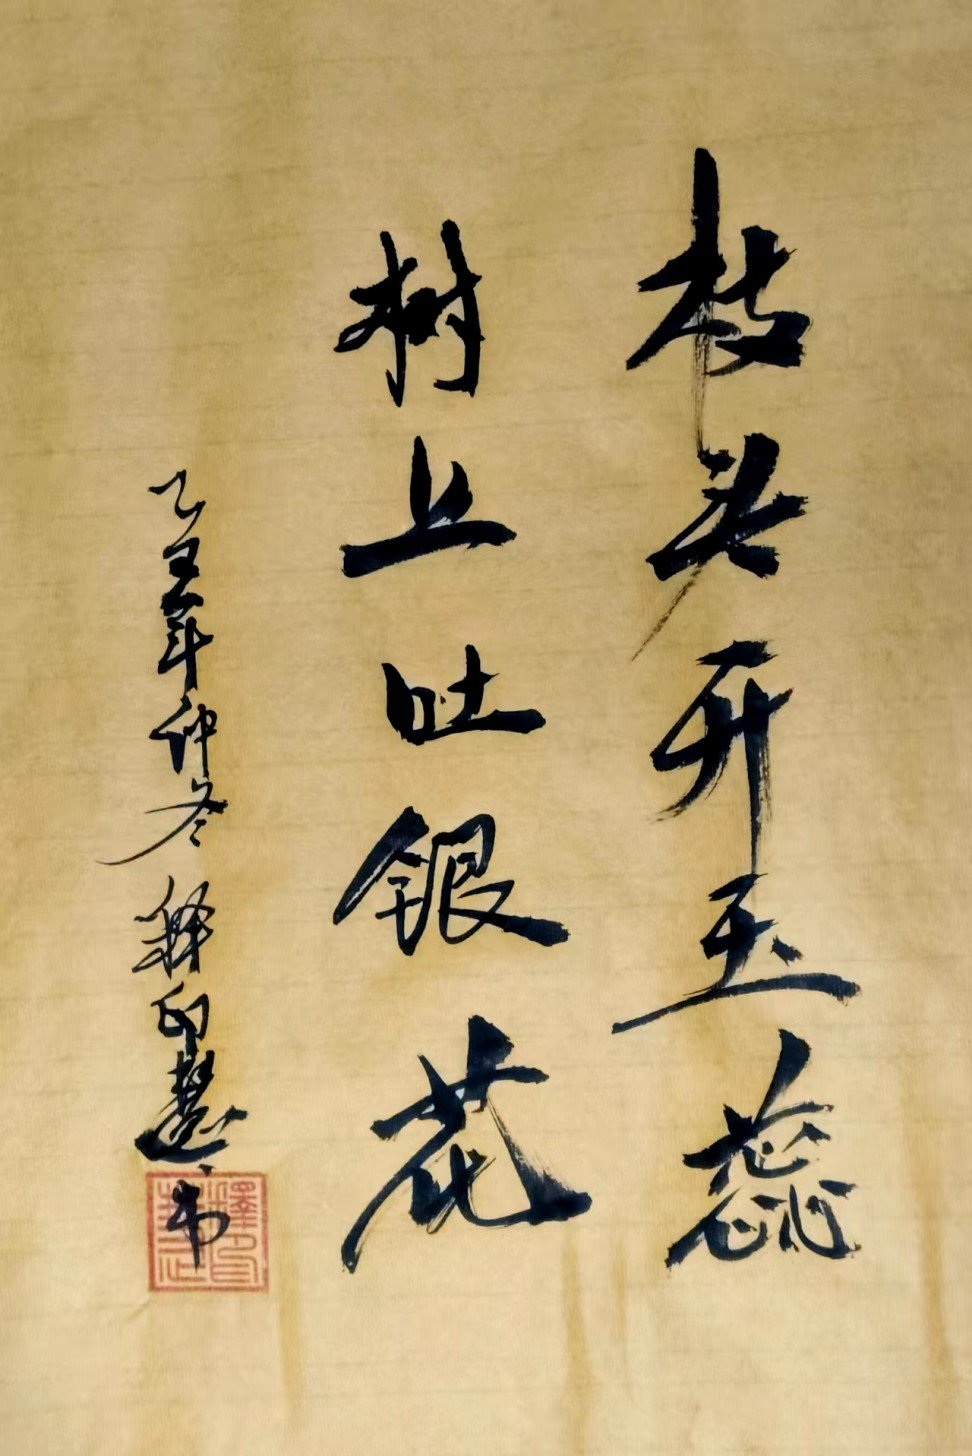 枝头开玉蕊
树上吐银花
乙丑年仲冬 释印慧书